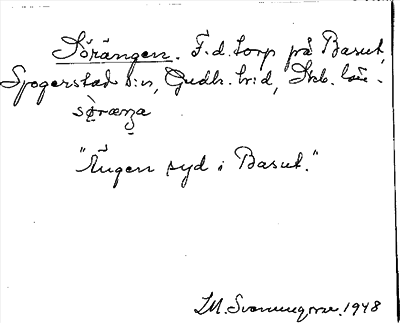 Sörängen. F.d. torp på Basut,
Sjogerstad s:n, Gudh. hr:d, Skb. län.
sɔ̀rænga
"Ängen syd i Basut."
I.M. Svenningsson. 1948